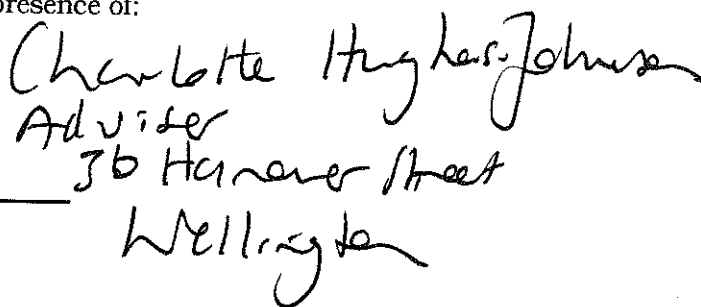 presence of:
Charlotte Hughes-Johnson
Adviser
36 Hanover Street
Wellington